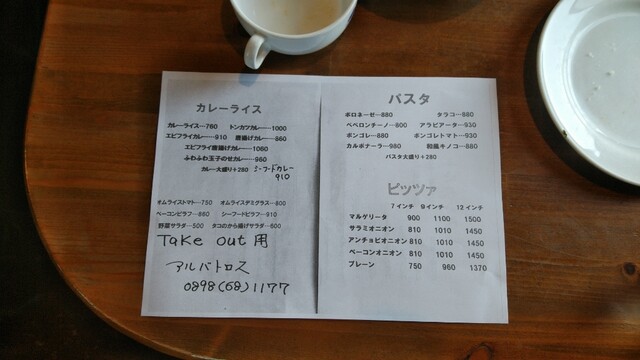 カレーライス
カレーライス…760 トンカツカレー…1000
エビフライカレー…910 唐揚げカレー…860
エビフライ唐揚げカレー…1060
ふわふわ玉子のせカレー…960
カレー大盛り+280 シーフードカレー
910
オムライストマト…750 オムライスデミグラス…800
ベーコンピラフ…860 シーフードピラフ…910
野菜サラダ…500 タコのから揚げサラダ…600
Take out用
アルバトロス
0898(68)1177
パスタ
ボロネーゼ…880 タラコ…880
ペペロンチーノ…800 アラビアータ…930
ボンゴレ…880 ボンゴレトマト…930
カルボナーラ…980 和風キノコ…880
パスタ大盛り+280
ピッツァ
7インチ 9インチ 12インチ
マルゲリータ 900 1100 1500
サラミオニオン 810 1010 1450
アンチョビオニオン 810 1010 1450
ベーコンオニオン 810 1010 1450
プレーン 750 960 1370